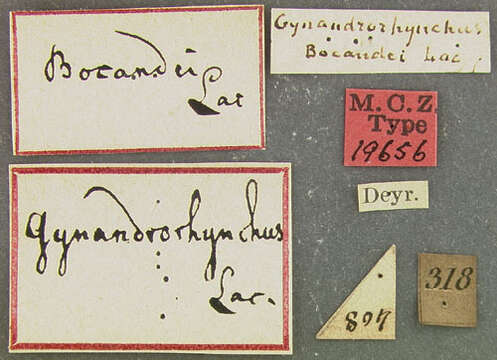 Bocandei
Lac
Gynandrorhynchus
Bocandei Lac.
M.C.Z.
Type
19656
Deyr.
Gynandrorhynchus
Lac.
897
318